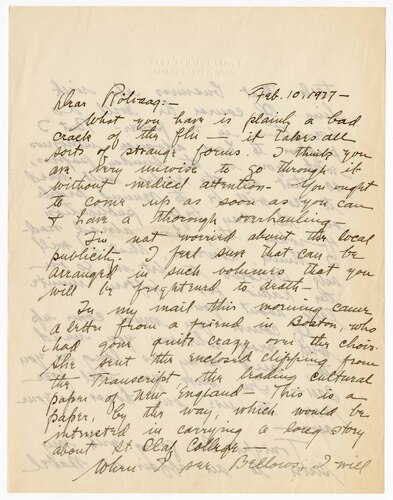 Feb. 10, 1927-
Dear Rölvaag:-
What you have is plainly a bad
crack of the flu - it takes all
sorts of strange forms. I think you
are very unwise to go through it
without medical attention - You ought
to come up as soon as you can
& have a thorough overhauling -
I'm not worried about the local
publicity. I feel sure that can be
arranged in such volumes that you
will be frightened to death -
In my mail this morning came
a letter from a friend in Boston, who
had gone quite crazy over the choir.
She sent the enclosed clipping from
the Transcript, the leading cultural
paper of New England - This is a
paper, by the way, which would be
interested in carrying a long story
about St Olaf College -
When I see Bellows, I will